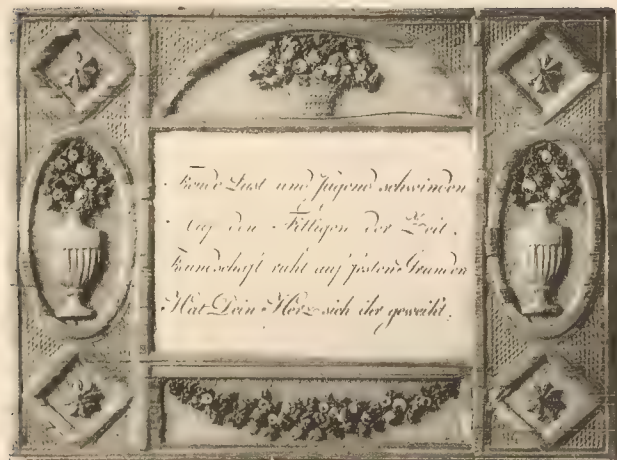 Freude Lust und Jugend schwinden
Auf den Fittigen der Zeit.
Freundschaft ruht auf festen Gründen
Hat Dein Herz sich ihr geweiht.